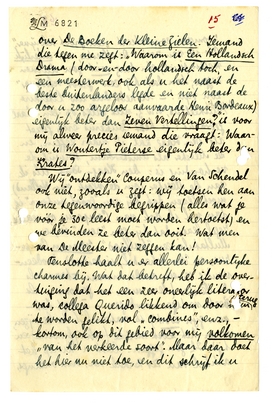 M 6821
15
over De Boeken der Kleine Zielen. Iemand
die tegen me zegt: Waarom is Een Hollandsch
Drama (door-en-door hollandsch toch, en
een meesterwerk, ook als je het naast de
beste buitenlanders legde en niet naast de
door u zoo argeloos aanvaarde Henri Bordeaux)
eigenlijk beter dan Zeven Vertellingen? is voor
mij alweer precies iemand die vraagt: Waar-
om is Woutertje Pieterse eigenlijk beter d'n
Krates?
Wij "ontdekken" Couperus en Van Schendel
ook niet, zooals u zegt: wij toetsen hen aan
onze tegenwoordige begrippen (alles wat je
vóór je 30e leest moet worden hertoetst) en
we bevinden ze beter dan ooit. Wat men
van De Meester niet zeggen kan!
Tenslotte haalt u er allerlei persoonlijke
charmes bij. Wat dat betreft, heb ik de over-
tuiging dat het een zeer oneerlijk literator
was, collega Querido likkend om door
terug
te worden gelikt, vol "combines", enz. -
kortom, ook op dit gebied voor mij volkomen
"van het verkeerde soort". Maar daar doet
het hier nu niet toe, en dit schrijf ik u